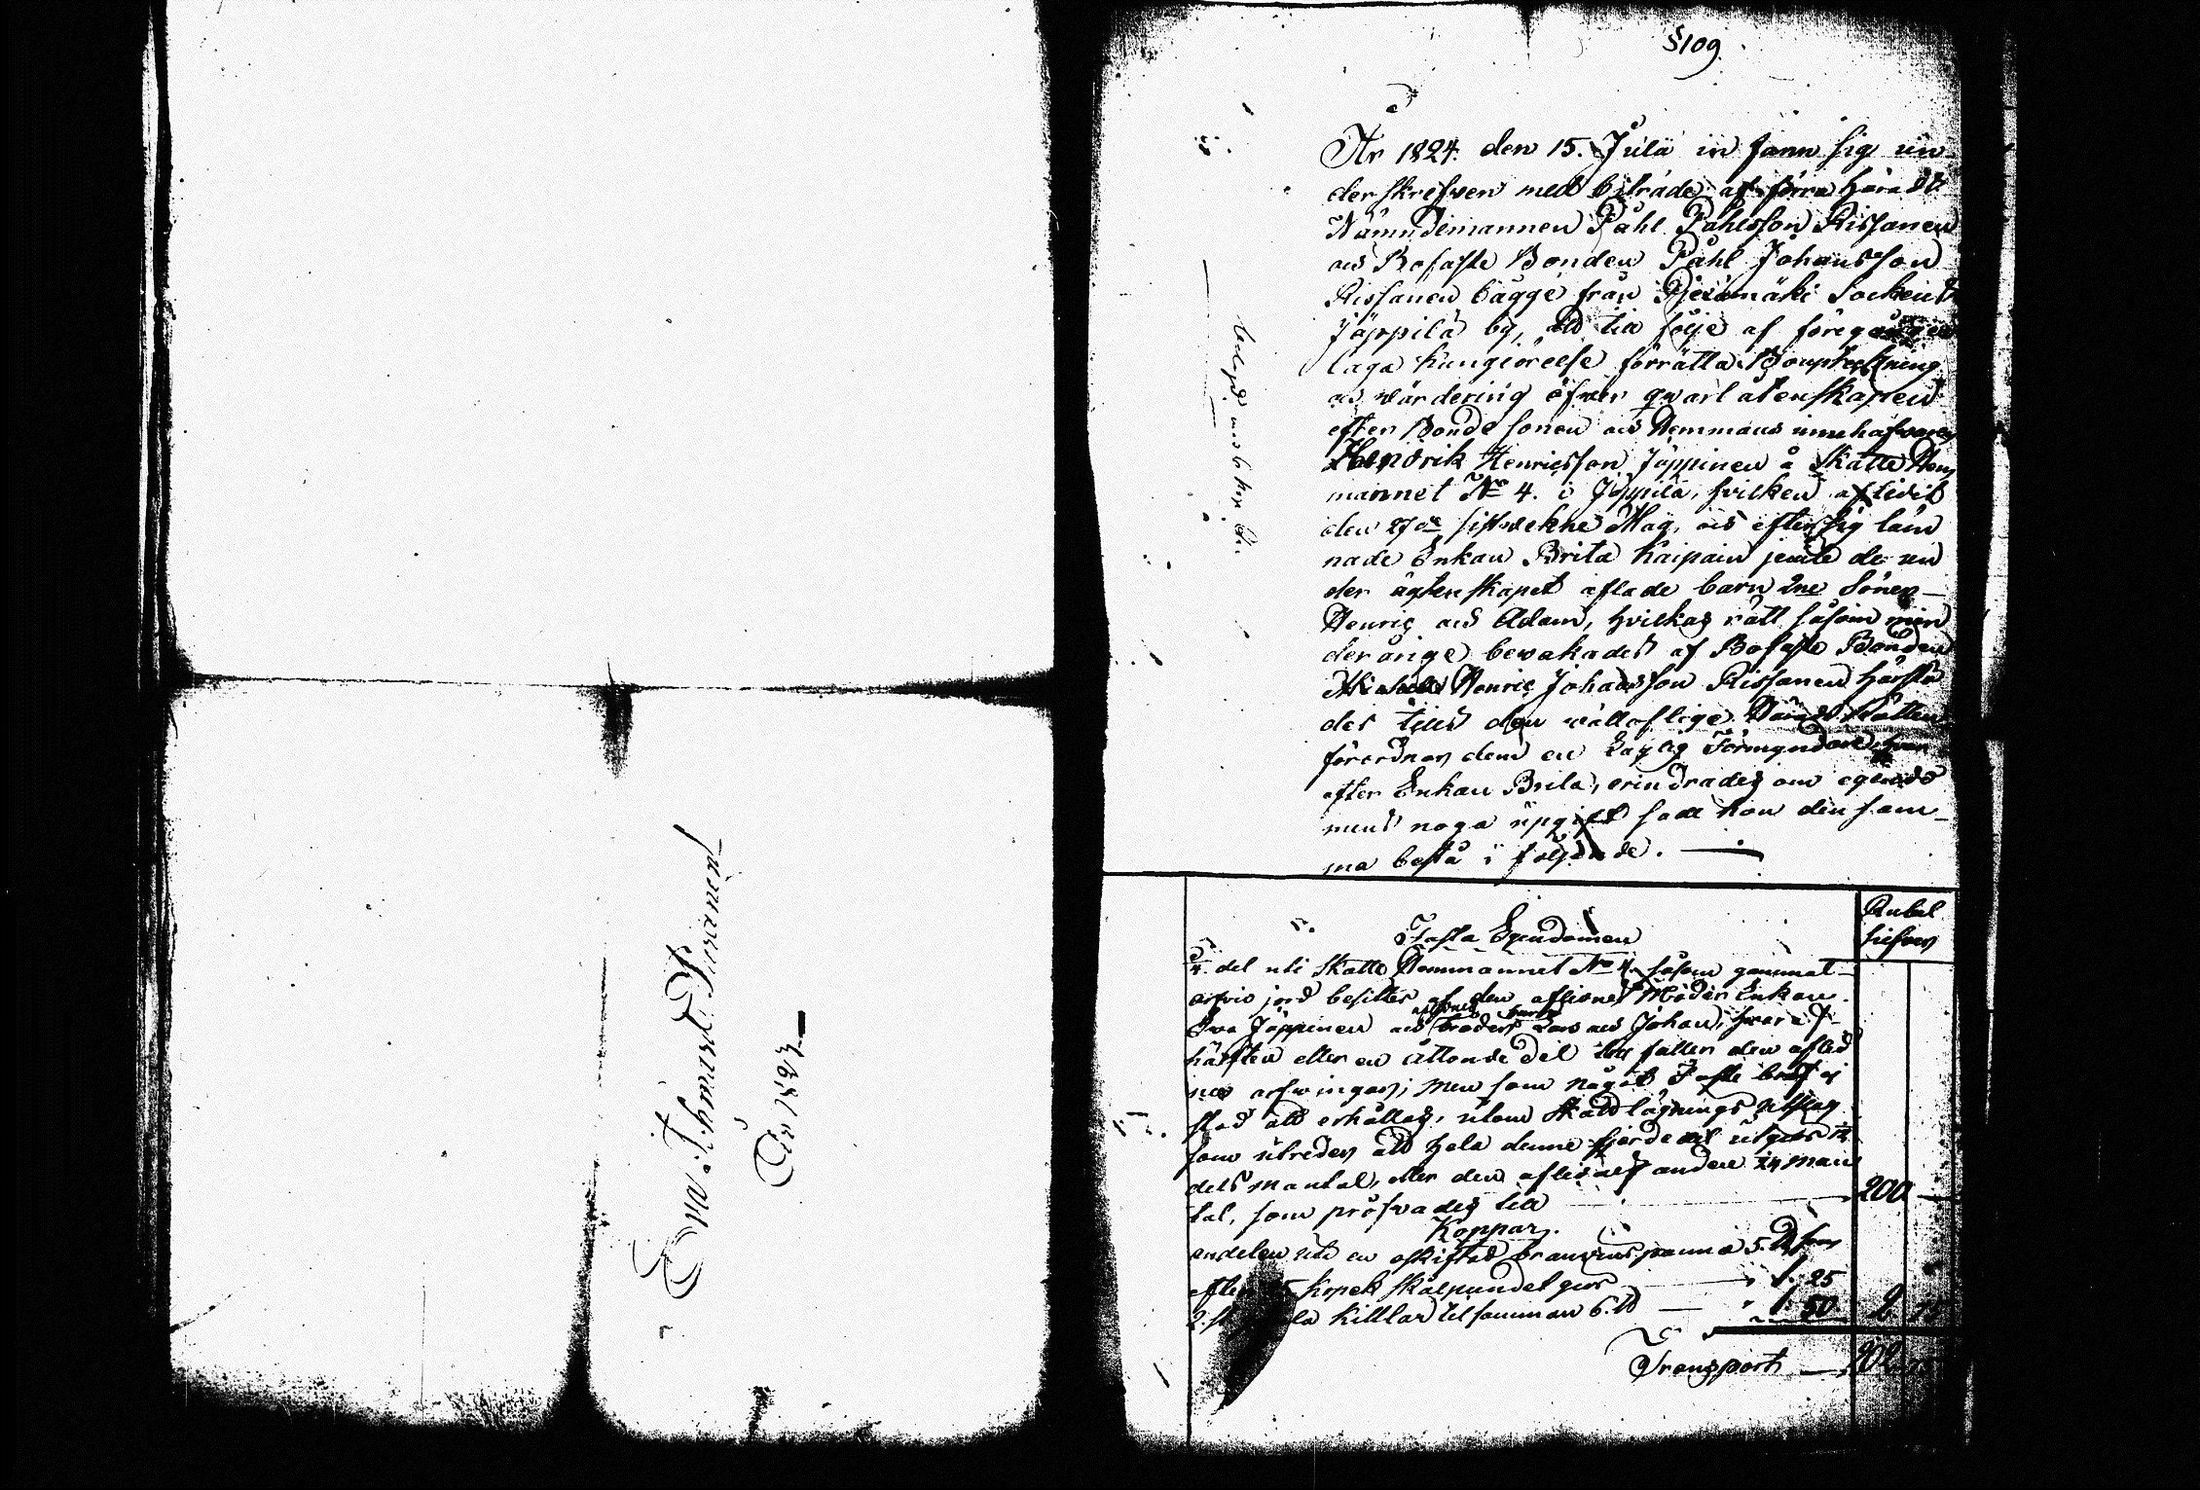 Eva Ihmard. Tiranen
År 1824.
§109.
År 1824. den 15. Julii in fann sig un-
derskrefven med biträde af förra Härads
Nämndemannen Påhl Påhlsson Rissanen
och Bofaste Bonden Påhl Johansson
Rissanen bägge från Pjexämäki Sockens
Jäppilä by, att till följe af föregången
laga kungiörelse förrätta Bouptekning
och värdering öfver qvarlåtenskapen
efter Bonde sonen och Hemmans innehafvaren
Hendrik Henricsson Jäppinen å Skatte Hem
mannet No 4. i Jäppilä, hvilken aflidit
den 27de sistvekne Maij, och efter sig läm
nade Enkan Brita Kaipain jemte de un
der ägtenskapet aflade barn 2ne Söner
Henric och Adam, hvilkas rätt såsom min
derårige bevakades af Bofaste Bonden
Henric Johansson Rissanen härstä
des tills den välloflige Härads Rätten
förordnar dem en Laglig Förmyndare, hvar
efter Enkan Brita, erindrades om egendo
mens noga uppgift sade hon den sam-
ma bestå i följande.
Rubel
silfver
Fasta Egendomen
1/4. del uti Skatte Hemmannet No 4. såsom gammal
arfvio jord besittes af den aflidnes Moder Enkan
Eva Jäppinen och aflidnes broders barn Lars och Johan, hvaraf
hälften eller en åttonde del till faller den aflid
nes arfvingar; men som något Faste bref ej
stod att erhållas, utom Skattlägnings Utslag
som utreder att hela denne fjerde del utgör 1/12
dels mantal, eller den aflidnes andel 1/24 man
tal, som pröfvades till 200
Koppar.
andelen uti en oskiftad branvins panna 5. ℔ som
efter 25 kopek skålpundet gör 1. 25
2. st kittlar tilsamman 6. ℔ 1. 50 2 75
Transport 202 75